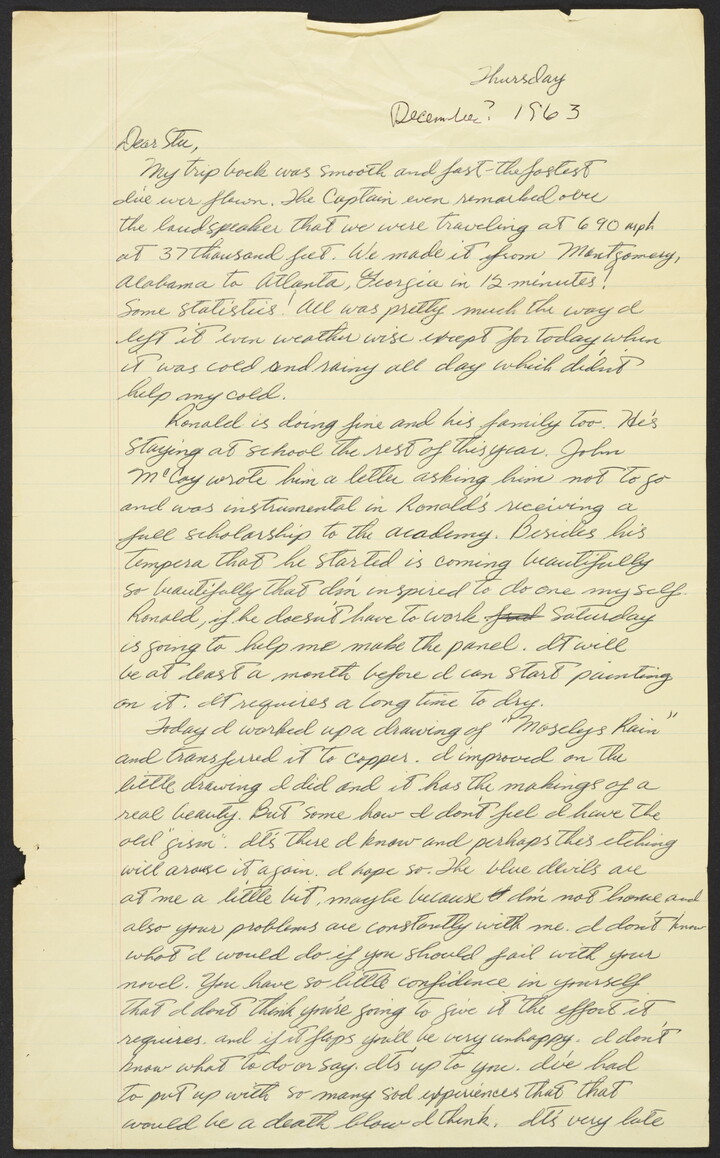 Thursday
December? 1963
Dear Stu,
My trip back was smooth and fast - the fastest
I've ever flown. The Captain even remarked over
the loudspeaker that we were traveling at 690 mph
at 37 thousand feet. We made it from Montgomery,
Alabama to Atlanta, Georgia in 12 minutes!
Some statistics! All was pretty much the way I
left it even weather wise except for today when
it was cold and rainy all day which didn't
help my cold.
Ronald is doing fine and his family too. He's
staying at school the rest of this year. John
McCoy wrote him a letter asking him not to go
and was instrumental in Ronald's receiving a
full scholarship to the academy. Besides his
tempera that he started is coming beautifully
so beautifully that I'm inspired to do one myself.
Ronald, if he doesn't have to work Saturday
is going to help me make the panel. It will
be at least a month before I can start painting
on it. It requires a long time to dry.
Today I worked up a drawing of "Moselys Rain"
and transferred it to copper. I improved on the
little drawing I did and it has the makings of a
real beauty. But some how I don't feel I have the
old "gism". It's there I know and perhaps this etching
will arouse it again. I hope so. The blue devils are
at me a little bit, maybe because I'm not home and
also your problems are constantly with me. I don't know
what I would do if you should fail with your
novel. You have so little confidence in yourself
that I dont think you're going to give it the effort it
requires. and if it flops you'll be very unhappy. I don't
know what to do or say. It's up to you. I've had
to put up with so many sad experiences that that
would be a death blow I think. It's very late